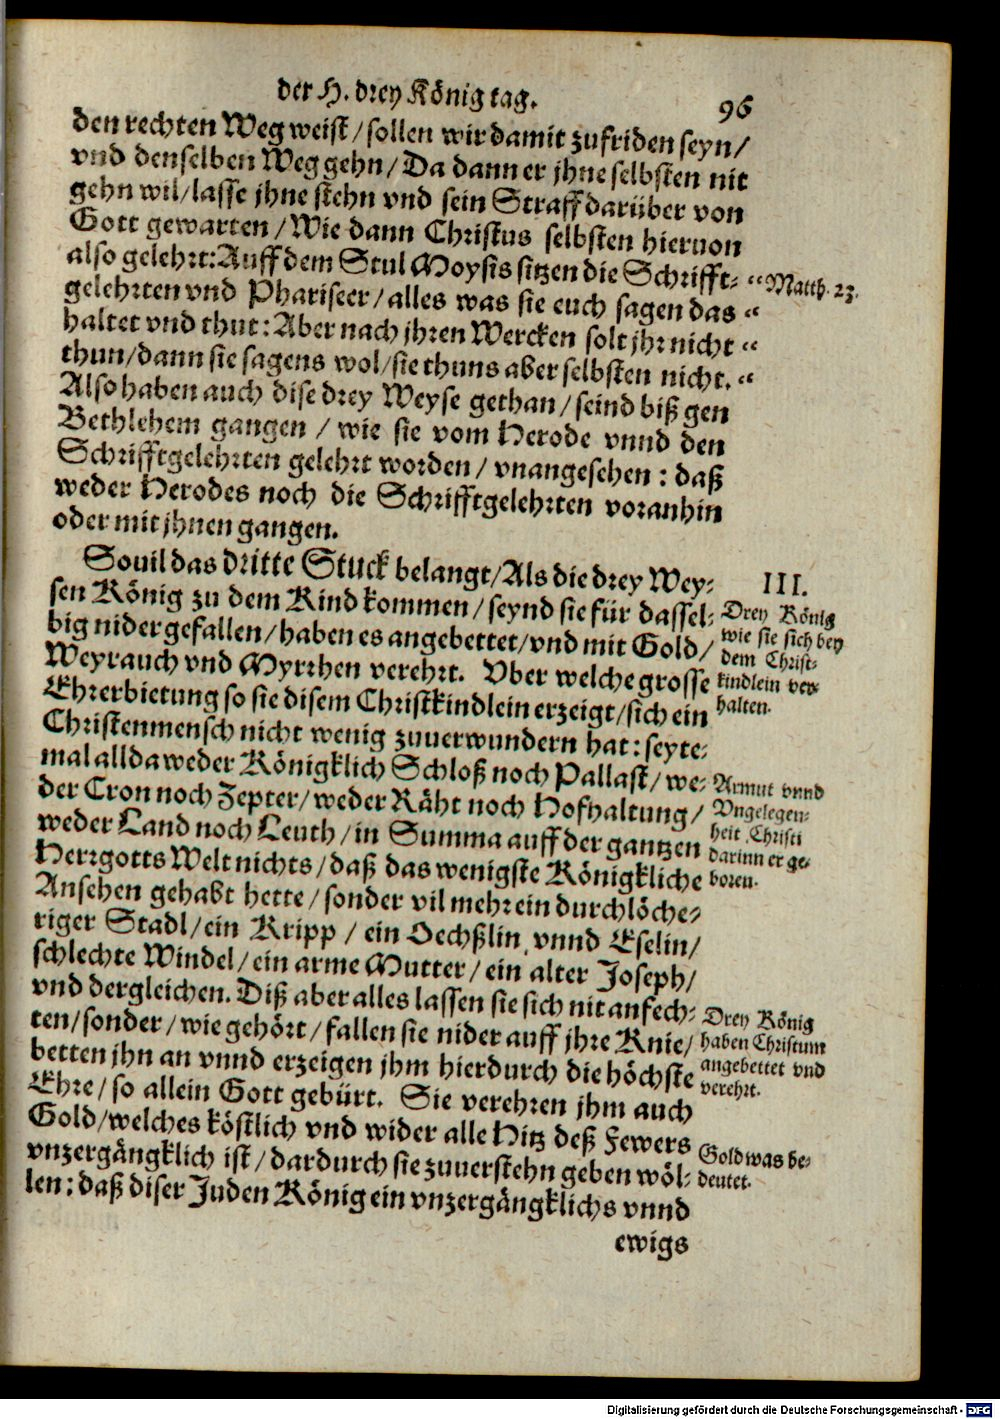 der H. drey König tag.
96
den rechten Weg weist / sollen wir damit zufriden seyn /
vnd denselben Weg gehn / Da dann er jhne selbsten nit
gehn wil / lasse jhne stehn vnd sein Straff darüber von
Gott gewarten / Wie dann Christus selbsten hieruon
also gelehrt: Auff dem Stul Moysis sitzen die Schrifft- “ Matth. 23.
gelehrten vnd Phariseer / alles was sie euch sagen das “
haltet vnd thut: Aber nach jhren Wercken solt jhr nicht “
thun / dann sie sagens wol / sie thuns aber selbsten nicht. “
Also haben auch dise drey Weyse gethan / seind biß gen
Bethlehem gangen / wie sie vom Herode vnnd den
Schrifftgelehrten gelehrt worden / vnangesehen: daß
weder Herodes noch die Schrifftgelehrten voranhin
oder mit jhnen gangen.
Souil das dritte Stuck belangt / Als die drey Wey-
sen König zu dem Kind kommen / seynd sie für dassel-
big nider gefallen / haben es angebettet / vnd mit Gold /
Weyrauch vnd Myrrhen verehrt. Vber welche grosse
Ehrerbietung so sie disem Christkindlein erzeigt / sich ein
Christenmensch nicht wenig zuuerwundern hat: seyte-
mal allda weder Königklich Schloß noch Pallast / we-
der Cron noch Zepter / weder Räht noch Hofhaltung /
weder Land noch Leuth / in Summa auff der gantzen
Herrgotts Welt nichts / daß das wenigste Königkliche
Ansehen gehabt hette / sonder vil mehr ein durchlöche-
riger Stadl / ein Kripp / ein Oechßlin vnnd Eselin /
schlechte Windel / ein arme Mutter / ein alter Joseph /
vnd dergleichen. Diß aber alles lassen sie sich nit anfech-
ten / sonder / wie gehört / fallen sie nider auff jhre Knie /
betten jhn an vnnd erzeigen jhm hierdurch die höchste
Ehre / so allein Gott gebürt. Sie verehren jhm auch
Gold / welches köstlich vnd wider alle Hitz deß Fewers
vnzergängklich ist / dardurch sie zuuerstehn geben wöl-
len: daß diser Juden König ein vnzergängklichs vnnd
ewigs
III.
Drey König
wie sie sich bey
dem Christ-
kindlein ver-
halten.
Armut vnnd
Vngelegen-
heit Christi
darinn er ge-
boren.
Drey König
haben Christum
angebettet vnd
verehrt.
Gold was be-
deutet.
Digitalisierung gefördert durch die Deutsche Forschungsgemeinschaft - DFG